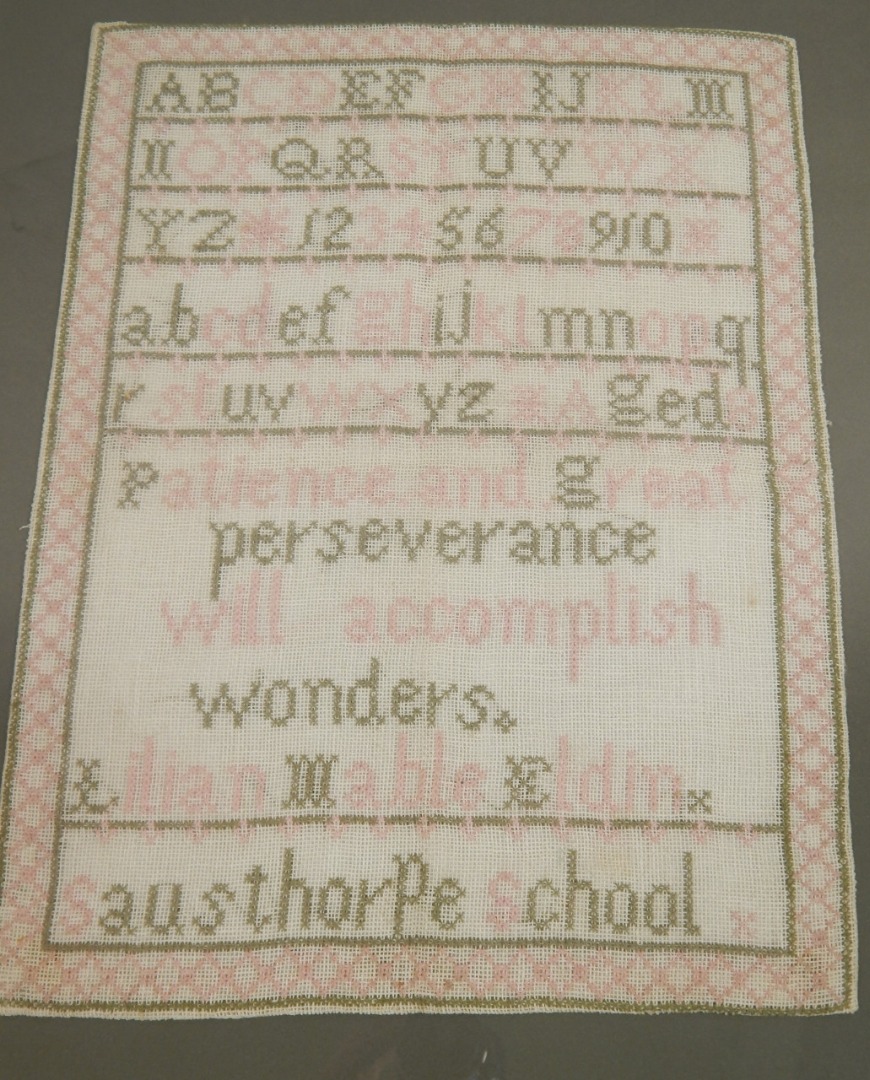 ABCDEFGHIJKLM
NOPQRSTUVWX
YZ*12345678910*
abcdefghijklmnopq
rstuvwxyz & A ged 8
Patience and great
perseverance
will accomplish
wonders.
Lilian Mable Eldin x
Sausthorpe School x